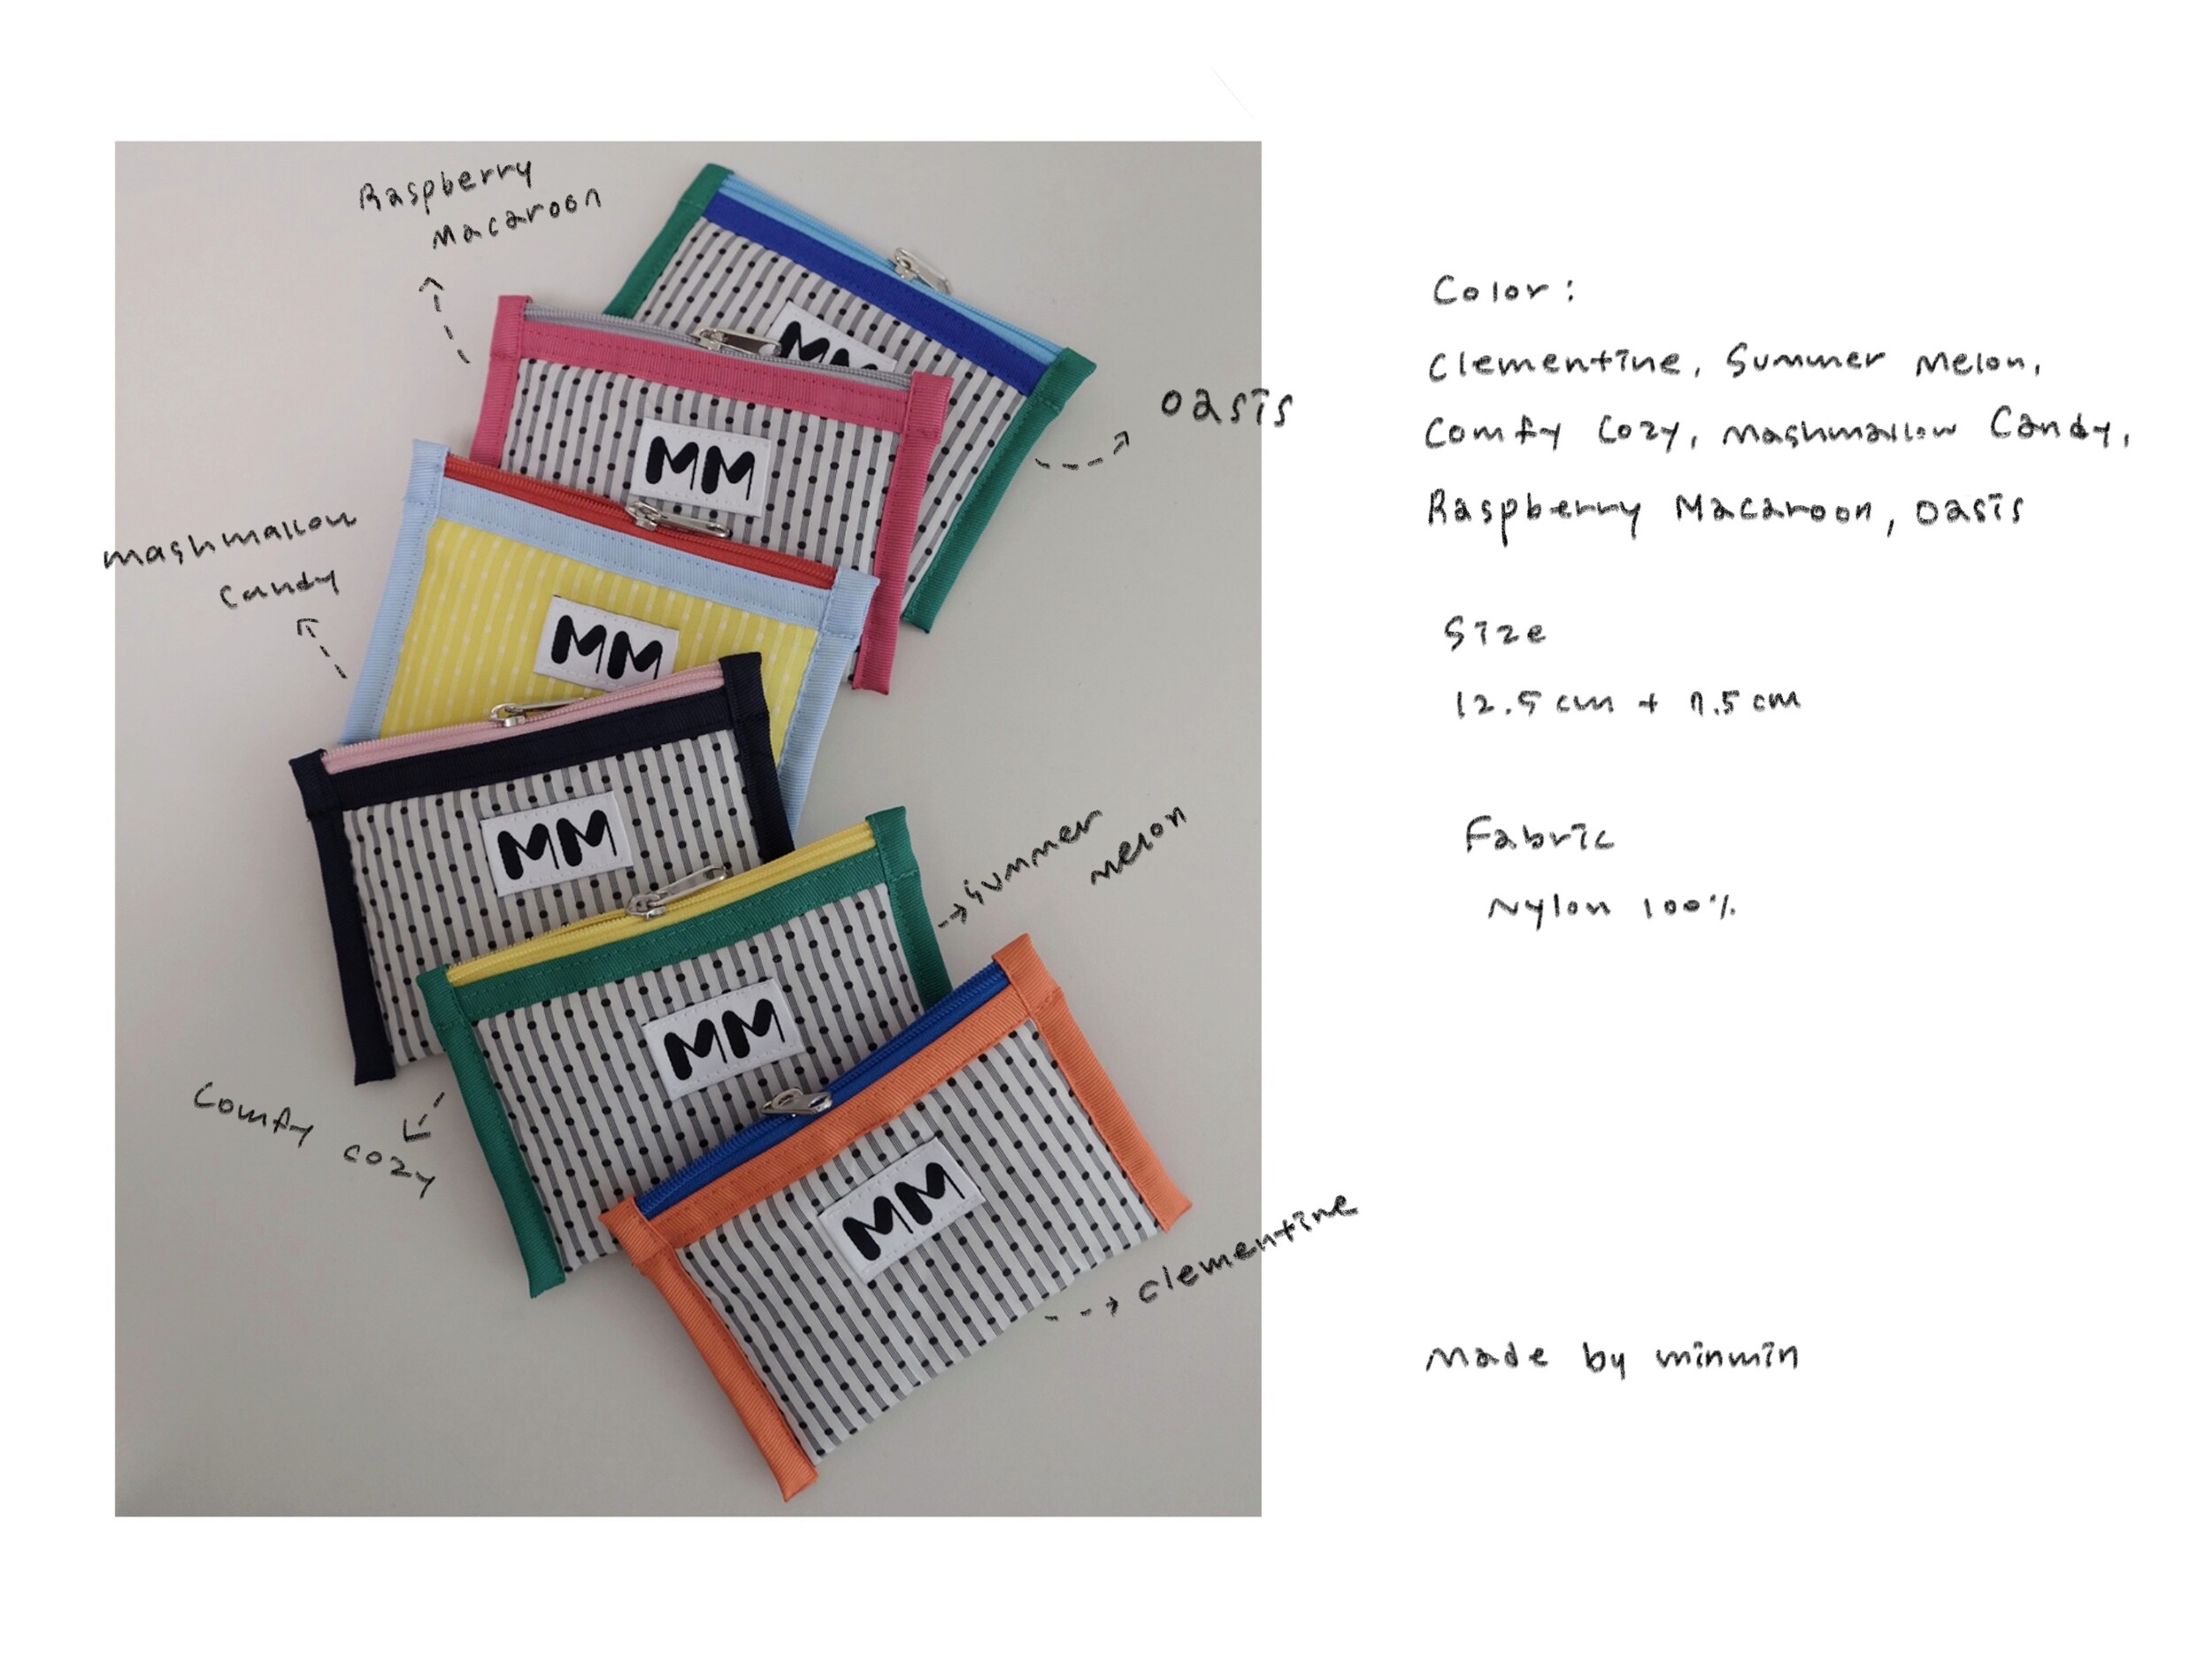 Raspberry
Macaroon
oasis
mashmallow
candy
summer
melon
Comfy cozy
clementine
MM
MM
MM
MM
MM
MM
Color:
Clementine, Summer Melon,
Comfy Cozy, Mashmallow Candy,
Raspberry Macaroon, oasis
Size
12.5 cm + 7.5 cm
Fabric
Nylon 100%
Made by minmin